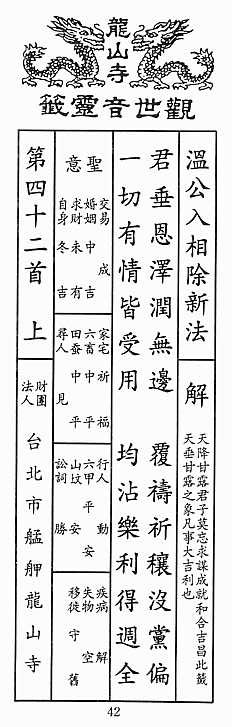 龍山寺
觀世音靈籤
溫公入相除新法
解
天降甘露君子莫忘求謀成就和合吉昌此籤
天垂甘露之象凡事大吉利也
君垂恩澤潤無邊 覆禱祈穰沒黨偏
一切有情皆受用 均沾樂利得週全
聖意
交易 成
婚姻 中吉
求財 未有
自身 冬吉
家宅 祈福
六畜 中平
田蚕 中平
尋人 見
行人 動
六甲 平安
山坟 安
訟詞 勝
疾病 解
失物 空
移徙 守舊
第四十二首 上
財團
法人
台北市艋舺龍山寺
42